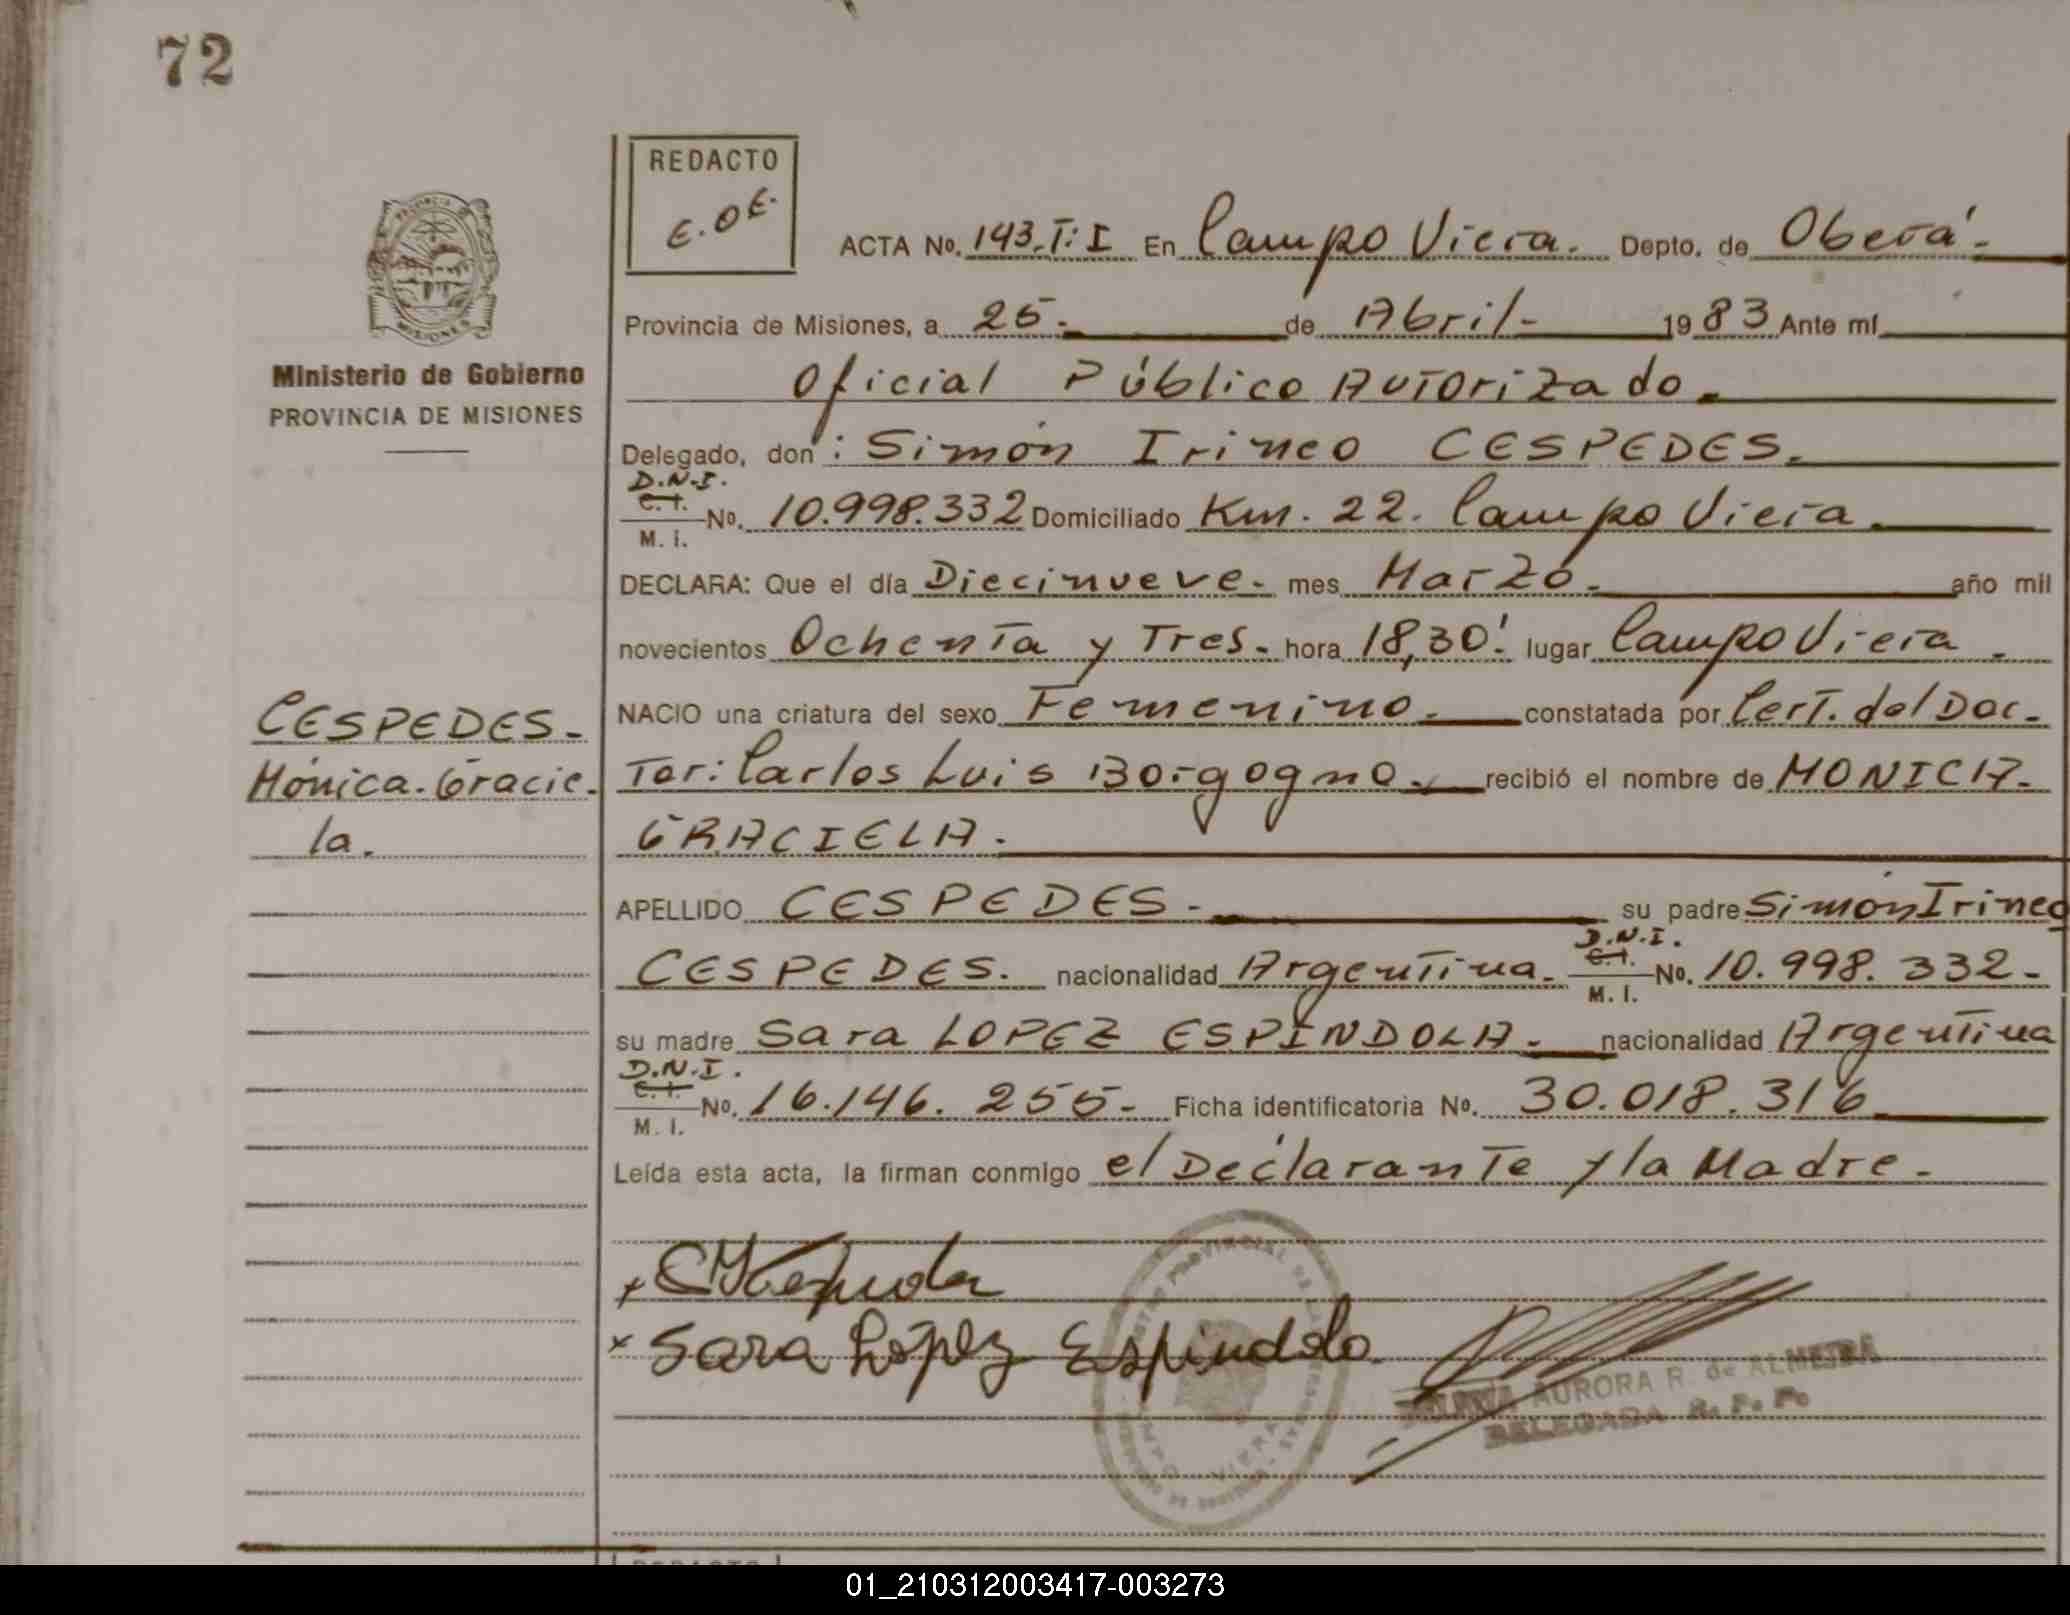 72
REDACTO
E.O.E.
ACTA No. 143.T:I En Campo Viera. Depto. de Oberá.-
Provincia de Misiones, a 25- de Abril- 1983 Ante mí
Oficial Público Autorizado.
Delegado, don: Simón Irineo CESPEDES.
D.N.I.
C.I.
M. I.
No. 10.998.332 Domiciliado Km. 22. Campo Viera.
DECLARA: Que el día Diecinueve- mes Marzo. año mil
novecientos Ochenta y Tres. hora 18,30' lugar Campo Viera.
NACIO una criatura del sexo Femenino.- constatada por Cert. del Doc-
tor: Carlos Luis Borgogno. recibió el nombre de MONICA-
GRACIELA.
APELLIDO CESPEDES- su padre Simón Irineo
CESPEDES. nacionalidad Argentina. D.N.I. C.I. M. I. No. 10.998.332-
su madre Sara LOPEZ ESPINDOLA. nacionalidad Argentina
D.N.I.
C.I.
M. I.
No. 16.146.255- Ficha identificatoria No. 30.018.316
Leída esta acta, la firman conmigo el Declarante y la Madre-
x
x Sara López Espindola
AURORA R. de ALMEIRA
DELEGADA R. P. P.
PROVINCIA DE MISIONES
Ministerio de Gobierno
PROVINCIA DE MISIONES
CESPEDES-
Mónica-Gracie-
la.
REDACTO
01_210312003417-003273